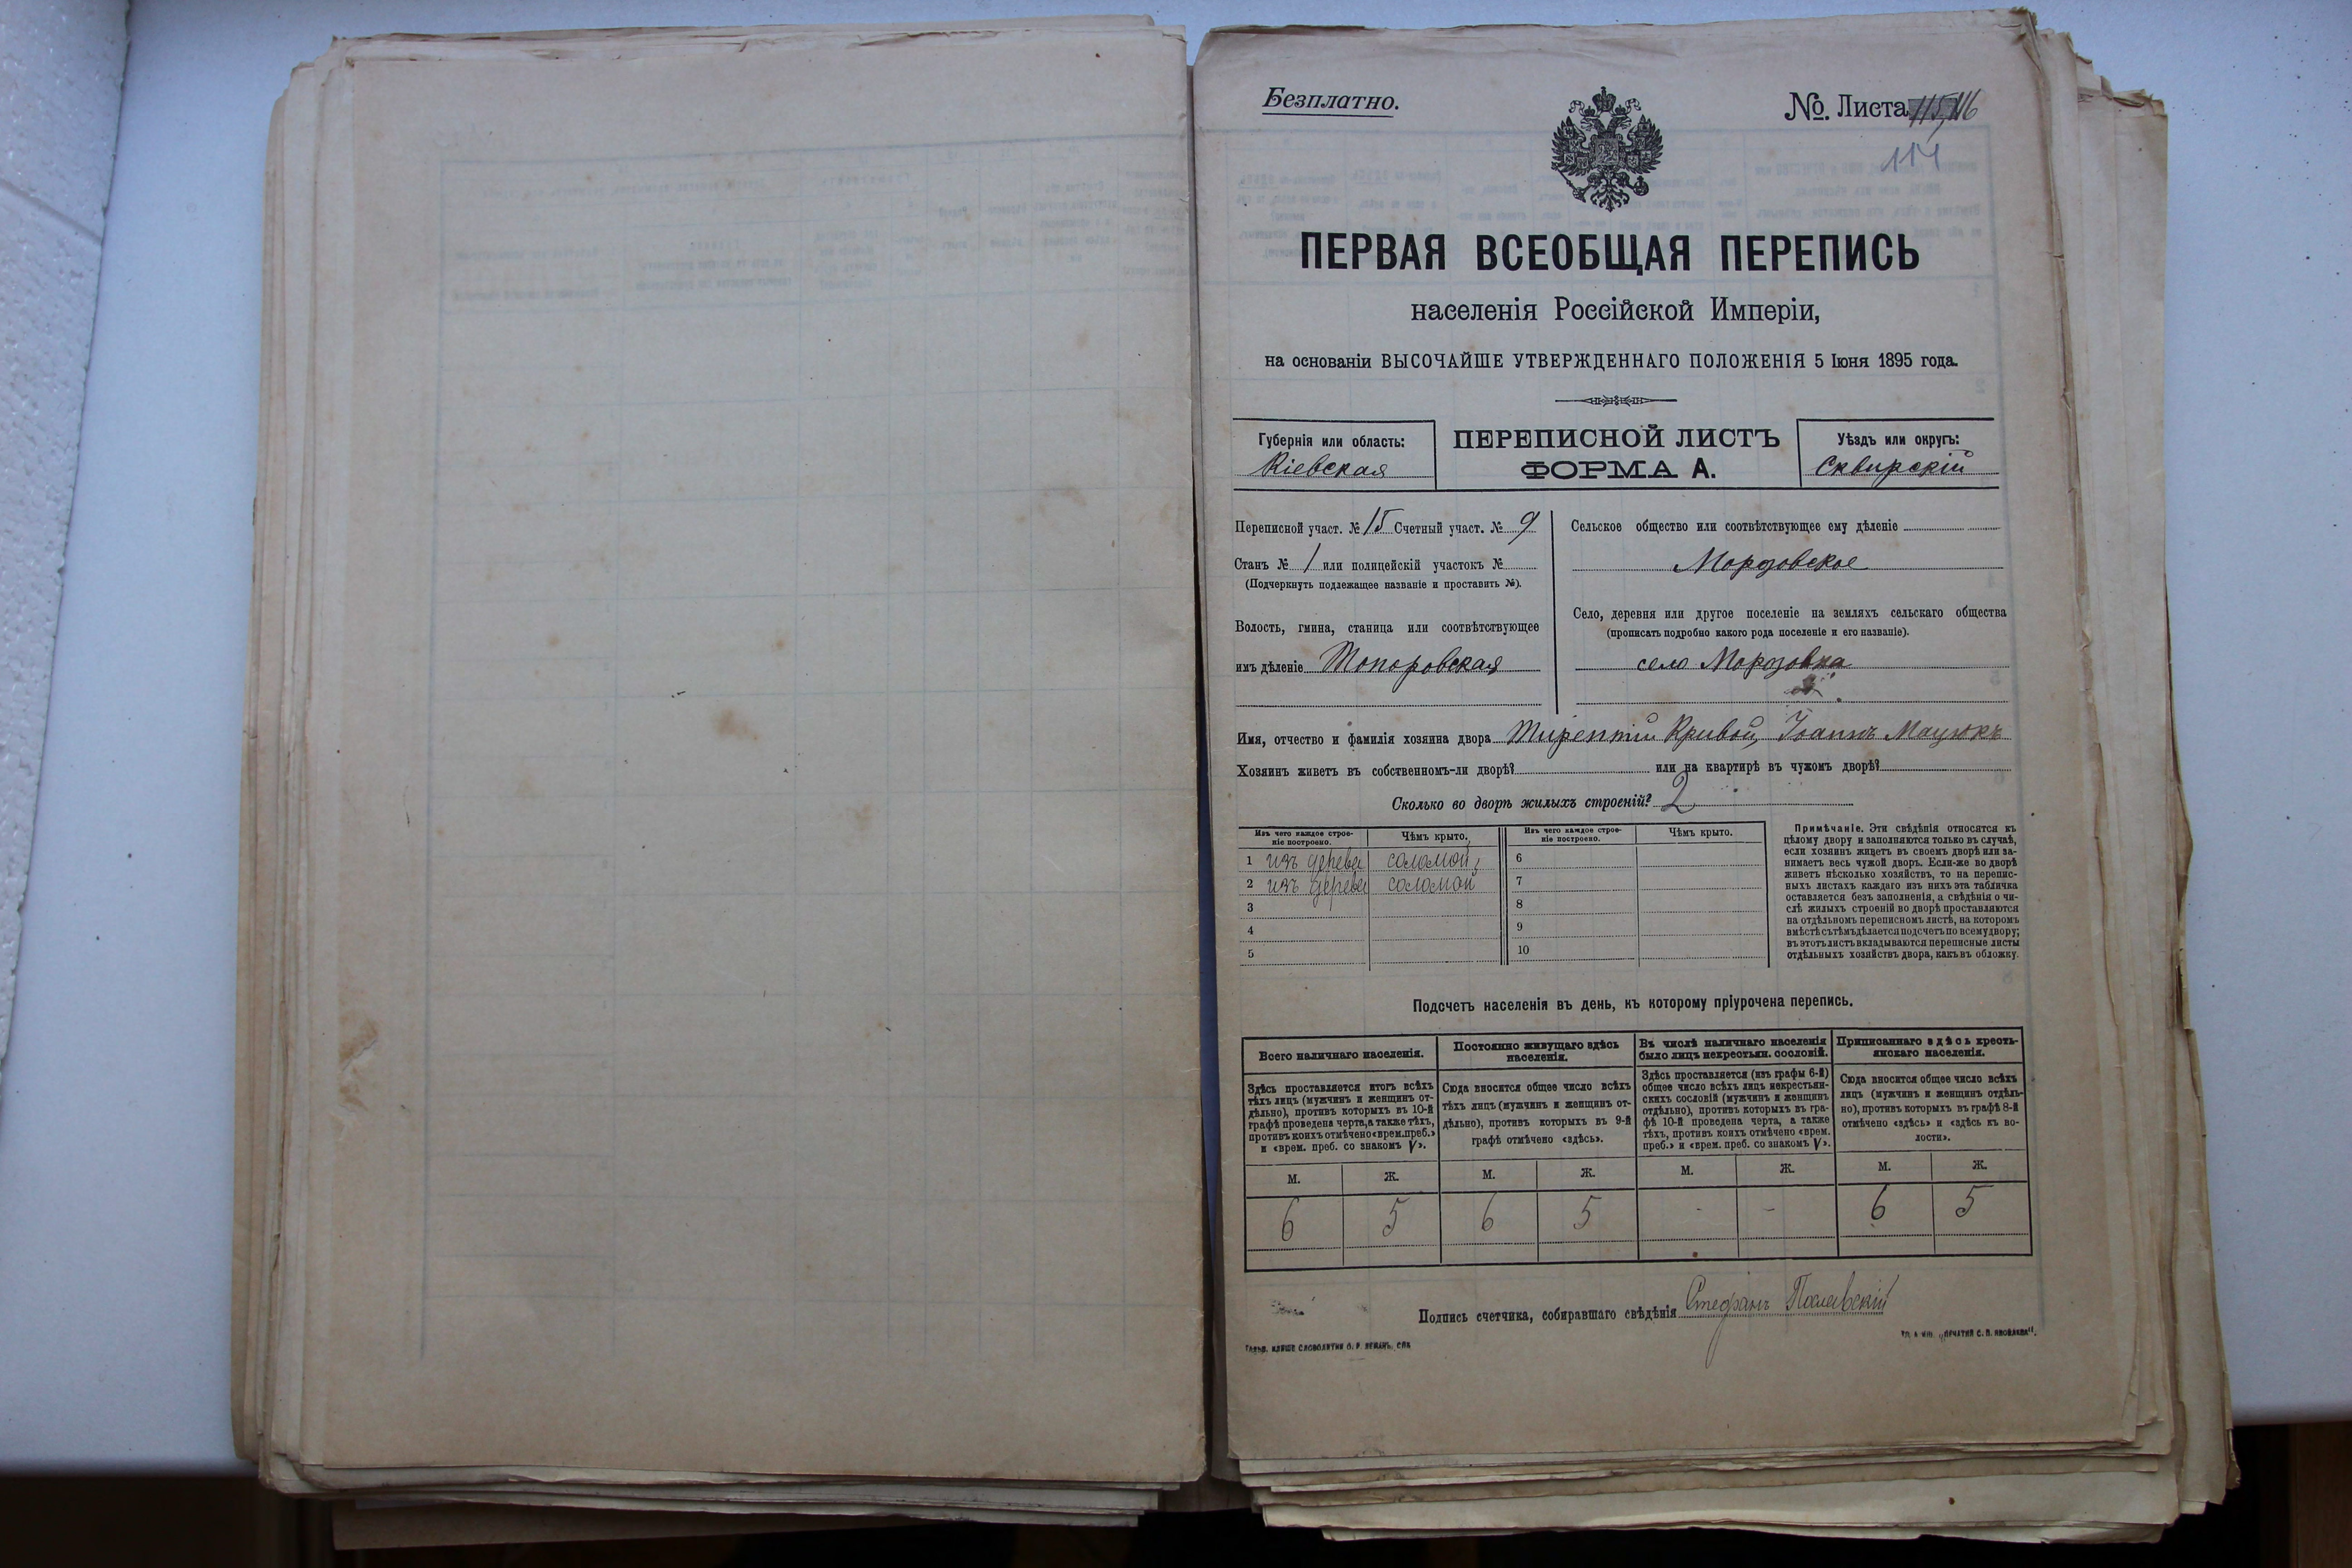 Безплатно.
№. Листа 115, 116
114
ПЕРВАЯ ВСЕОБЩАЯ ПЕРЕПИСЬ
населенія Россійской Имперіи,
на основаніи ВЫСОЧАЙШЕ УТВЕРЖДЕННАГО ПОЛОЖЕНІЯ 5 Іюня 1895 года.
Губернія или область:
Кіевская
ПЕРЕПИСНОЙ ЛИСТЪ
ФОРМА А.
Уѣздъ или округъ:
Сквирскій
Переписной участ. № 15 Счетный участ. № 9
Станъ № 1 или полицейскій участокъ №
(Подчеркнуть подлежащее названіе и проставить №).
Волость, гмина, станица или соотвѣтствующее
имъ дѣленіе Топоровская
Сельское общество или соотвѣтствующее ему дѣленіе
Морозовское
Село, деревня или другое поселеніе на земляхъ сельскаго общества
(прописать подробно какого рода поселеніе и его названіе).
село Морозовка
Имя, отчество и фамилія хозяина двора Кривой, Іоаннъ Мацюкъ
Хозяинъ живетъ въ собственномъ-ли дворѣ? или на квартирѣ въ чужомъ дворѣ?
Сколько во дворѣ жилыхъ строеній? 2
Изъ чего каждое строе-
ніе построено.
Чѣмъ крыто.
Изъ чего каждое строе-
ніе построено.
Чѣмъ крыто.
1 изъ дерева соломой 6
2 изъ дерева соломой 7
3 8
4 9
5 10
Примѣчаніе. Эти свѣдѣнія относятся къ
цѣлому двору и заполняются только въ случаѣ,
если хозяинъ живетъ въ своемъ дворѣ или за-
нимаетъ весь чужой дворъ. Если-же во дворѣ
живетъ нѣсколько хозяйствъ, то на перепис-
ныхъ листахъ каждаго изъ нихъ эта табличка
оставляется безъ заполненія, а свѣдѣнія о чи-
слѣ жилыхъ строеній во дворѣ проставляются
на отдѣльномъ переписномъ листѣ, на которомъ
вмѣстѣ съ тѣмъ дѣлается подсчетъ по всему двору;
въ этотъ листъ вкладываются переписные листы
отдѣльныхъ хозяйствъ двора, какъ въ обложку.
Подсчетъ населенія въ день, къ которому пріурочена перепись.
Всего наличнаго населенія.
Здѣсь проставляется итогъ всѣхъ
тѣхъ лицъ (мужчинъ и женщинъ от-
дѣльно), противъ которыхъ въ 10-й
графѣ проведена черта, а также тѣхъ,
противъ коихъ отмѣчено «врем. преб.»
и «врем. преб. со знакомъ V».
Постоянно живущаго здѣсь
населенія.
Сюда вносится общее число всѣхъ
тѣхъ лицъ (мужчинъ и женщинъ от-
дѣльно), противъ которыхъ въ 9-й
графѣ отмѣчено «здѣсь».
Въ числѣ наличнаго населенія
было лицъ некрестьян. сословій.
Здѣсь проставляется (изъ графы 6-й)
общее число всѣхъ лицъ некрестьян-
скихъ сословій (мужчинъ и женщинъ
отдѣльно), противъ которыхъ въ гра-
фѣ 10-й проведена черта, а также
тѣхъ, противъ коихъ отмѣчено «врем.
преб.» и «врем. преб. со знакомъ V».
Приписаннаго здѣсь кресть-
янскаго населенія.
Сюда вносится общее число всѣхъ
лицъ (мужчинъ и женщинъ отдѣль-
но), противъ которыхъ въ графѣ 8-й
отмѣчено «здѣсь» и «здѣсь къ во-
лости».
М. Ж. М. Ж. М. Ж. М. Ж.
6 5 6 5 - - 6 5
Подпись счетчика, собиравшаго свѣдѣнія Стефанъ